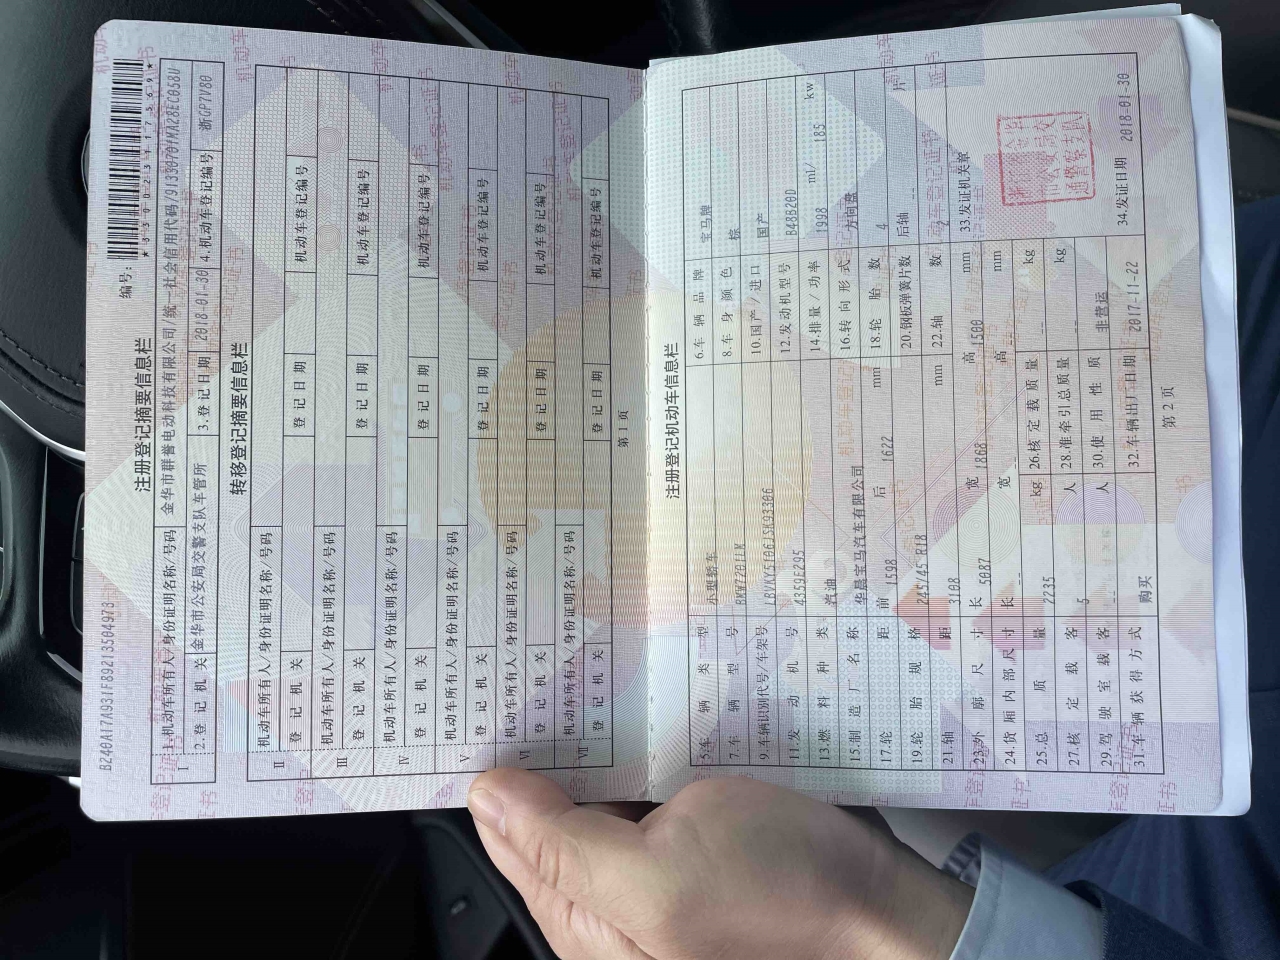 编号:
*330023117569*
B240A17A931F89213504973
注册登记摘要信息栏
Ⅰ 1.机动车所有人/身份证明名称/号码 金华市群誉电动科技有限公司/统一社会信用代码/91330701MA28EC058U
2.登记机关 金华市公安局交警支队车管所 3.登记日期 2018-01-30 4.机动车登记编号 浙GP7V80
转移登记摘要信息栏
Ⅱ 机动车所有人/身份证明名称/号码
登记机关 登记日期 机动车登记编号
Ⅲ 机动车所有人/身份证明名称/号码
登记机关 登记日期 机动车登记编号
Ⅳ 机动车所有人/身份证明名称/号码
登记机关 登记日期 机动车登记编号
Ⅴ 机动车所有人/身份证明名称/号码
登记机关 登记日期 机动车登记编号
Ⅵ 机动车所有人/身份证明名称/号码
登记机关 登记日期 机动车登记编号
Ⅶ 机动车所有人/身份证明名称/号码
登记机关 登记日期 机动车登记编号
第 1 页
注册登记机动车信息栏
5.车辆类型 小型轿车 6.车辆品牌 宝马牌
7.车辆型号 8.车身颜色 棕
9.车辆识别代号/车架号 10.国产/进口 国产
11.发动机号 4359E295 12.发动机型号 B48B20D
13.燃料种类 汽油 14.排量/功率 1998 ml/ 185 kw
15.制造厂名称 华晨宝马汽车有限公司 16.转向形式 方向盘
17.轮距 前 1598 后 1622 mm 18.轮胎数 4
19.轮胎规格 245/45 R18 20.钢板弹簧片数 后轴 片
21.轴距 3108 mm 22.轴数 2
23.外廓尺寸 长 5087 宽 1868 高 1500 mm 33.发证机关章
24.货厢内部尺寸 长 -- 宽 -- 高 -- mm
25.总质量 2235 kg 26.核定载质量 -- kg
27.核定载客 5 人 28.准牵引总质量 -- kg
29.驾驶室载客 -- 人 30.使用性质 非营运
31.车辆获得方式 购买 32.车辆出厂日期 2017-11-22 34.发证日期 2018-01-30
第 2 页